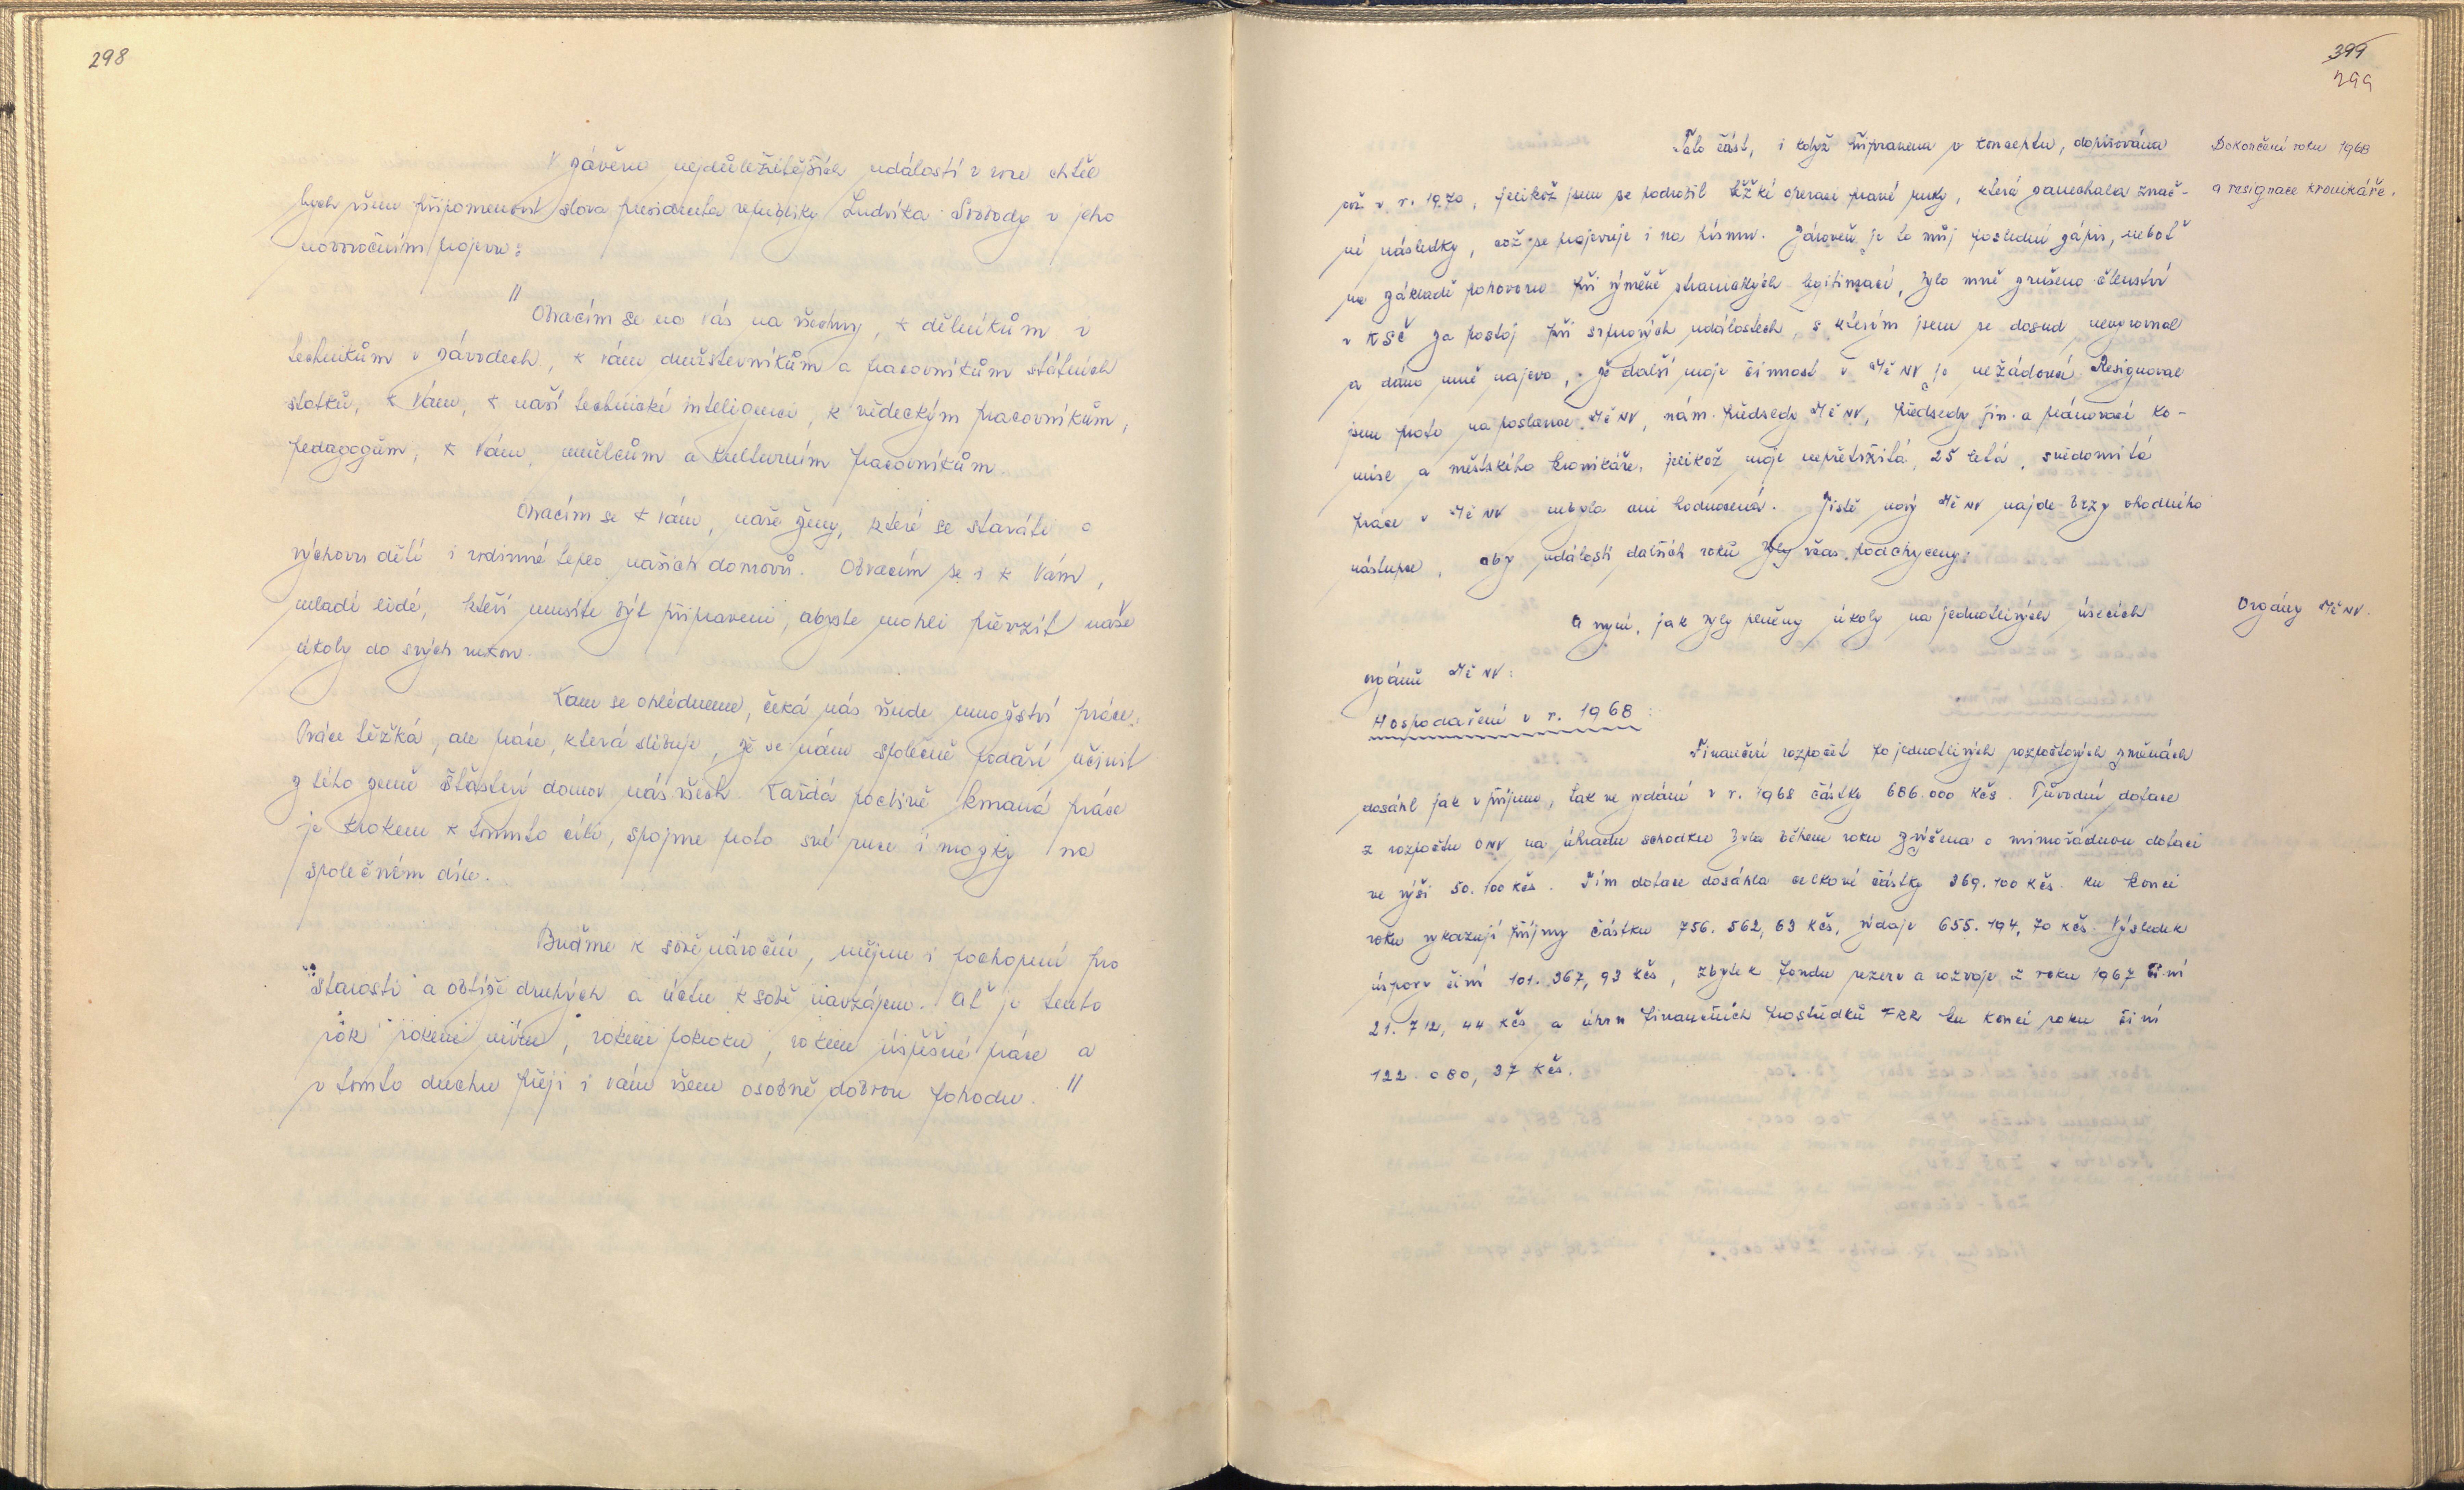 298
V závěru nejdůležitějších událostí v roce chtěl
bych všem připomenout slova presidenta republiky Ludvíka Svobody v jeho
novoročním projevu:
" Obracím se na vás na všechny, k dělníkům i
technikům v závodech, k vám družstevníkům a pracovníkům státních
statků, k Vám, k naší technické inteligenci, k vědeckým pracovníkům,
pedagogům, k Vám, umělcům a kulturním pracovníkům.
Obracím se k vám, naše ženy, které se staráte o
výchovu dětí i rodinné teplo našich domovů. Obracím se i k Vám,
mladí lidé, kteří musíte být připraveni, abyste mohli převzít naše
úkoly do svých rukou.
Kam se ohlédneme, čeká nás všude množství práce.
Práce těžká, ale práce, která slibuje, že se nám společně podaří učinit
z této země šťastný domov nás všech. Každá poctivě konaná práce
je krokem k tomuto cíli, spojme proto své ruce i mozky na
společném díle.
Buďme k sobě nároční, mějme i pochopení pro
starosti a obtíže druhých a úctu k sobě navzájem. Ať je tento
rok rokem míru, rokem pokroku, rokem úspěšné práce a
v tomto duchu přeji i vám všem osobně dobrou pohodu. "
399
299
Tato část, i když připravena v konceptu, dopisována
až v r. 1970, jelikož jsem se podrobil těžké operaci pravé ruky, která zanechala znač-
né následky, což se projevuje i na písmu. Zároveň je to můj poslední zápis, neboť
na základě pohovoru při výměně stranických legitimací, bylo mně zrušeno členství
v KSČ za postoj při srpnových událostech, s kterým jsem se dosud nevyrovnal
a dáno mně najevo, že další moje činnost v MěNV je nežádoucí. Resignoval
jsem proto na poslance MěNV, nám. předsedy MěNV, předsedy fin. a plánovací ko-
mise a městského kronikáře, jelikož moje nepřetržitá, 25 letá, svědomitá
práce v MěNV nebyla ani hodnocená. Jistě nový MěNV najde brzy vhodného
nástupce, aby události dalších roků byly včas podchyceny.
Dokončení roku 1968
a resignace kronikáře.
A nyní, jak byly plněny úkoly na jednotlivých úsecích
orgánů MěNV:
Orgány MěNV.
Hospodaření v r. 1968:
Finanční rozpočet po jednotlivých rozpočtových změnách
dosáhl jak v příjmu, tak ve vydání v r. 1968 částky 686.000 Kčs. Původní dotace
z rozpočtu ONV na úhradu schodku byla během roku zvýšena o mimořádnou dotaci
ve výši 50.100 Kčs. Tím dotace dosáhla celkové částky 369.100 Kčs. Ku konci
roku vykazují příjmy částku 756.562,63 Kčs, výdaje 655.194,70 Kčs. Výsledek
úspory činí 101.367,93 Kčs, zbytek fondu rezerv a rozvoje z roku 1967 činí
21.712,44 Kčs a úhrn finančních prostředků FRR ku konci roku činí
122.080,37 Kčs.